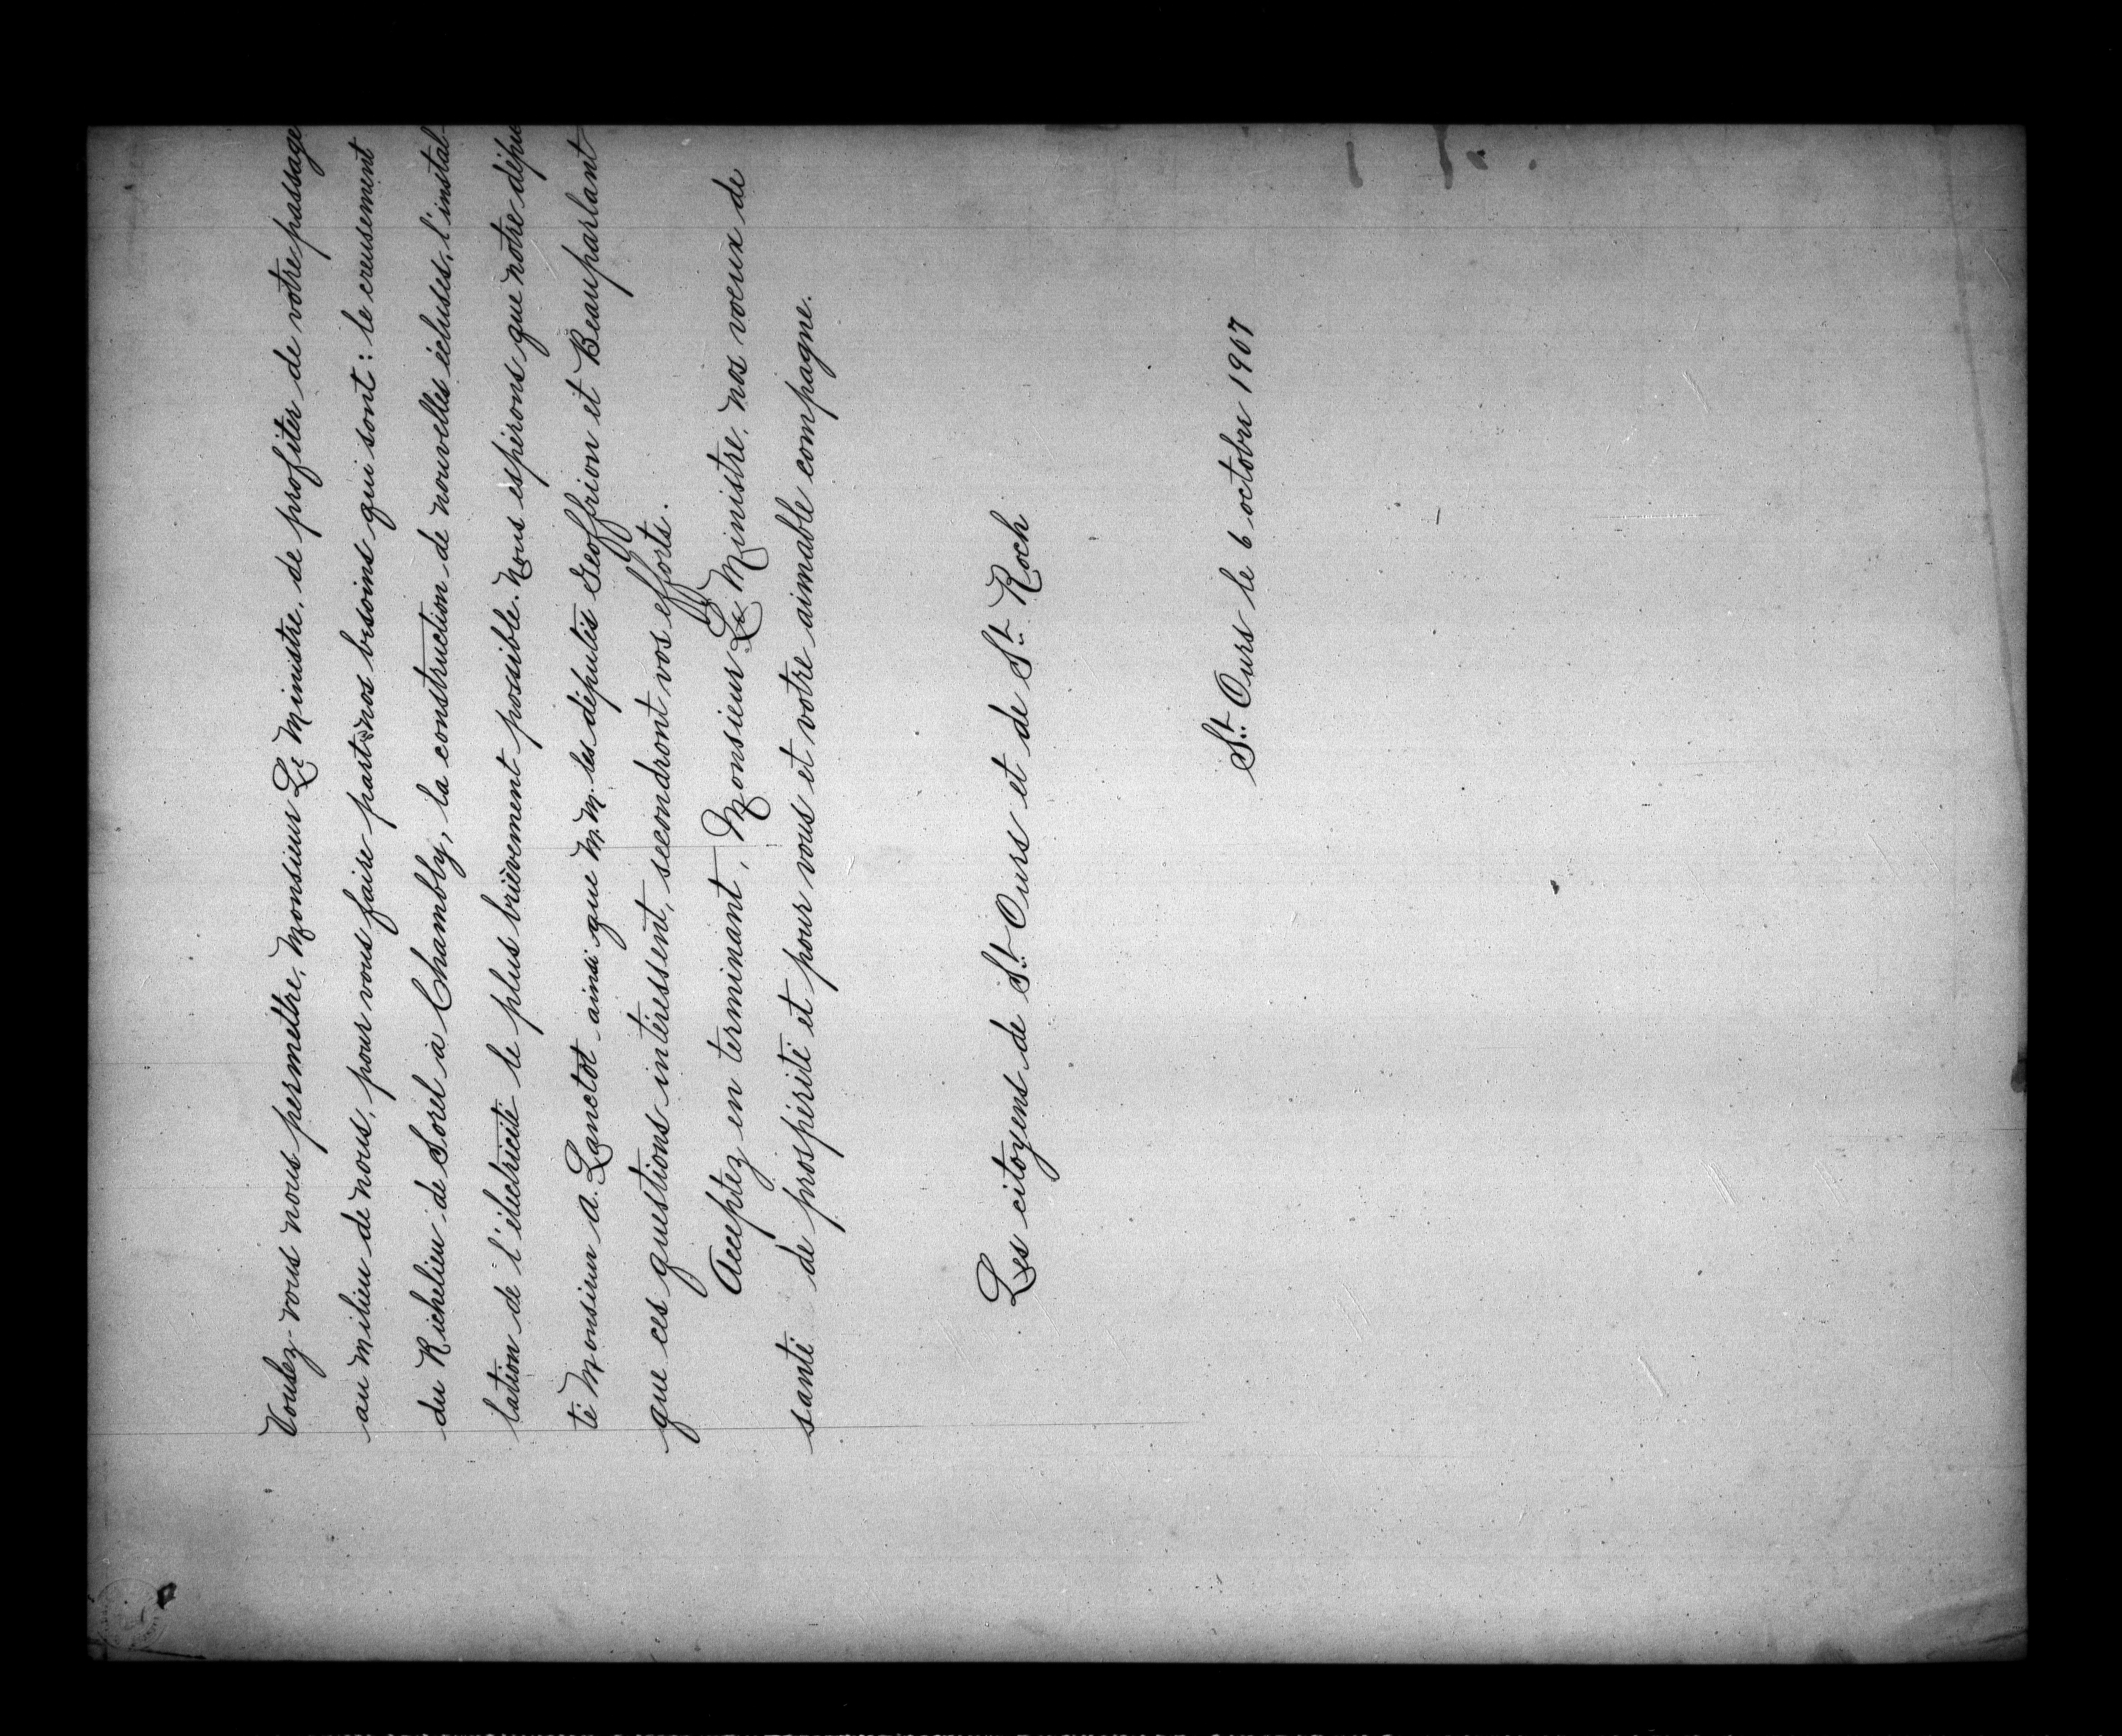 Voulez-vous nous permettre, Monsieur Le Ministre, de profiter de votre passage
au milieu de nous, pour vous faire part nos besoins qui sont: le creusement
du Richelieu de Sorel à Chambly, la construction de nouvelles écluses, l'instal-
lation de l'électricité le plus brièvement possible. Nous espérons que notre dépu
té Monsieur A. Lanctot ainsi que M.M. les députés Geoffrion et Beauparlant
que ces questions intéressent, secondront vos efforts.
Acceptez en terminant, Monsieur Le Ministre, nos voeux de
santé de prospérité et pour vous et votre aimable compagne.
Les citoyens de St. Ours et de St. Roch
St. Ours le 6 octobre 1907